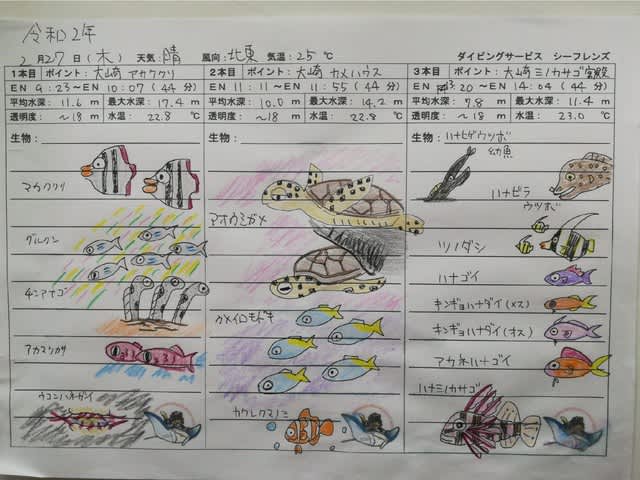 令和2年
2月27日(木) 天気:晴 風向:北東 気温:25℃ ダイビングサービス シーフレンズ
1本目 ポイント:大崎 アカククリ
EN 9:23~EN 10:07(44分)
平均水深:11.6 m 最大水深:17.4 m
透明度:~18 m 水温:22.8 ℃
生物:
アカククリ
グルクン
チンアナゴ
アカマツカサ
ウコンハネガイ
2本目 ポイント:大崎 カメハウス
EN 11:11~EN 11:55(44分)
平均水深:10.0 m 最大水深:14.2 m
透明度:~18 m 水温:22.8 ℃
生物:
アオウミガメ
ウメイロモドキ
カクレクマノミ
3本目 ポイント:大崎 ミノカサゴ宮殿
EN 13:20~EN 14:04(44分)
平均水深:7.8 m 最大水深:11.4 m
透明度:~18 m 水温:23.0 ℃
生物:
ハナヒゲウツボ
幼魚
ハナビラ
ウツボ
ツノダシ
ハナゴイ
キンギョハナダイ(メス)
キンギョハナダイ(オス)
アカネハナゴイ
ハナミノカサゴ